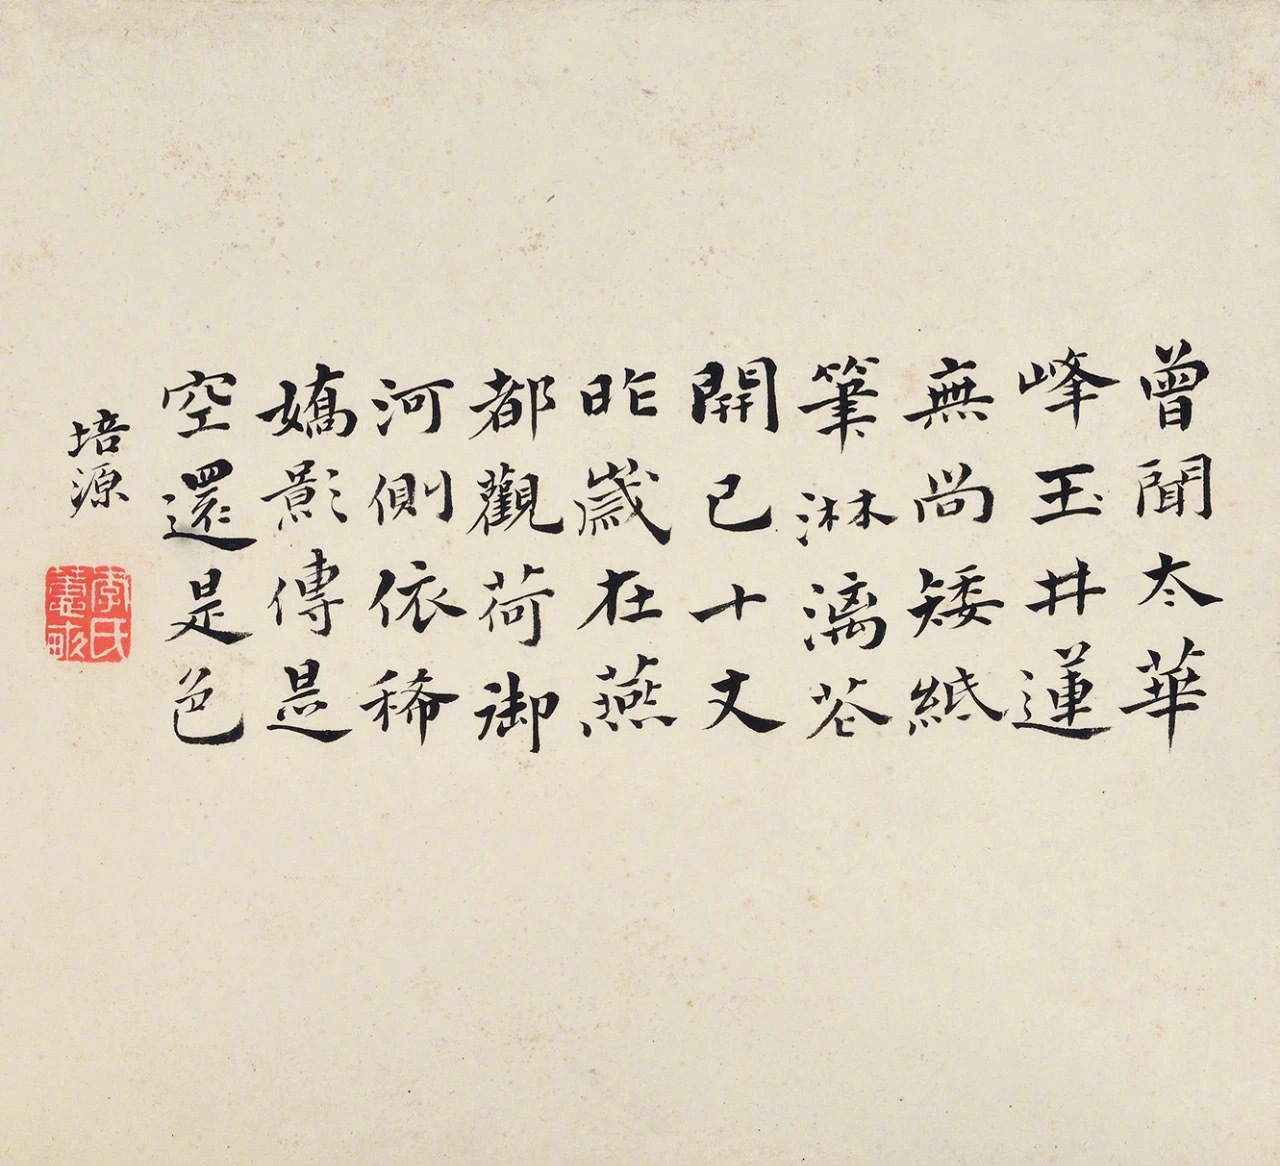 曾聞太華
峰玉井蓮
無尚矮紙
筆淋漓花
開已十丈
昨歲在燕
都觀荷御
河側依稀
嬌影傳是
空還是色
培源